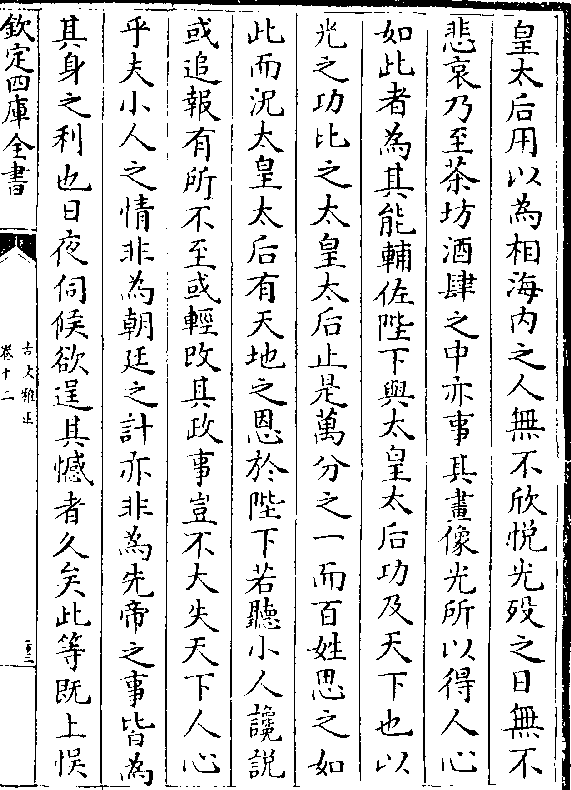 皇太后用以為相海内之人無不欣悦光歿之日無不
悲哀乃至茶坊酒肆之中亦事其畫像光所以得人心
如此者為其能輔佐陛下與太皇太后功及天下也以
光之功比之太皇太后止是萬分之一而百姓思之如
此而況太皇太后有天地之恩於陛下若聽小人讒説
或追報有所不至或輕改其政事豈不大失天下人心
乎夫小人之情非為朝廷之計亦非為先帝之事皆為
其身之利也日夜伺候欲逞其憾者久矣此等既上悞
欽定四庫全書
古文雅正
卷十二